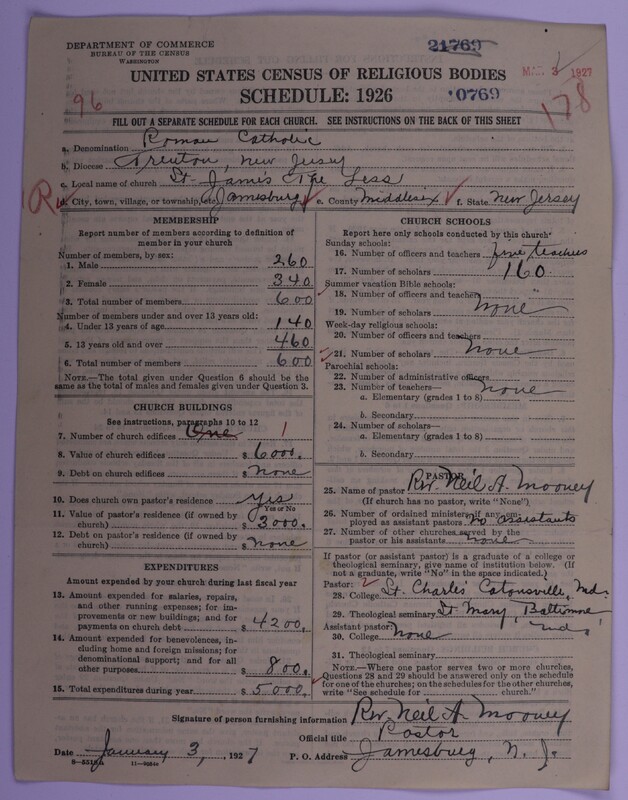 DEPARTMENT OF COMMERCE
BUREAU OF THE CENSUS
WASHINGTON
21769
UNITED STATES CENSUS OF RELIGIOUS BODIES
SCHEDULE: 1926
0769
3 1927
96
178
FILL OUT A SEPARATE SCHEDULE FOR EACH CHURCH. SEE INSTRUCTIONS ON THE BACK OF THIS SHEET
a. Denomination Roman Catholic
b. Diocese Trenton, New Jersey
c. Local name of church St. James The Less
R d. City, town, village, or township, etc. Jamesburg e. County Middlesex f. State New Jersey
MEMBERSHIP
Report number of members according to definition of member in your church
Number of members, by sex:
1. Male 260
2. Female 340
3. Total number of members 600
Number of members under and over 13 years old:
4. Under 13 years of age 140
5. 13 years old and over 460
6. Total number of members 600
NOTE.—The total given under Question 6 should be the same as the total of males and females given under Question 3.
CHURCH BUILDINGS
See instructions, paragraphs 10 to 12
7. Number of church edifices One 1
8. Value of church edifices $ 6000.
9. Debt on church edifices $ None
10. Does church own pastor's residence yes
Yes or No
11. Value of pastor's residence (if owned by church) $ 3000.
12. Debt on pastor's residence (if owned by church) $ None
EXPENDITURES
Amount expended by your church during last fiscal year
13. Amount expended for salaries, repairs, and other running expenses; for improvements or new buildings; and for payments on church debt $ 4200.
14. Amount expended for benevolences, including home and foreign missions; for denominational support; and for all other purposes $ 800.
15. Total expenditures during year $ 5000.
CHURCH SCHOOLS
Report here only schools conducted by this church
Sunday schools:
16. Number of officers and teachers five teachers
17. Number of scholars 160.
Summer vacation Bible schools:
18. Number of officers and teachers
19. Number of scholars none
Week-day religious schools:
20. Number of officers and teachers
21. Number of scholars none
Parochial schools:
22. Number of administrative officers
23. Number of teachers— none
a. Elementary (grades 1 to 8)
b. Secondary
24. Number of scholars—
a. Elementary (grades 1 to 8)
b. Secondary
PASTOR
25. Name of pastor Rev. Neil A. Mooney
(If church has no pastor, write "None")
26. Number of ordained ministers, if any, employed as assistant pastors no assistants
27. Number of other churches served by the pastor or his assistants none
If pastor (or assistant pastor) is a graduate of a college or theological seminary, give name of institution below. (If not a graduate, write "No" in the space indicated.)
Pastor:
28. College St. Charles Catonsville, Md.
29. Theological seminary St Mary, Baltimore Md.
Assistant pastor:
30. College None
31. Theological seminary
NOTE.—Where one pastor serves two or more churches, Questions 28 and 29 should be answered only on the schedule for one of the churches; on the schedules for the other churches, write "See schedule for church."
Signature of person furnishing information Rev. Neil A. Mooney
Official title Pastor
Date January 3, 1927 P. O. Address Jamesburg, N. J.